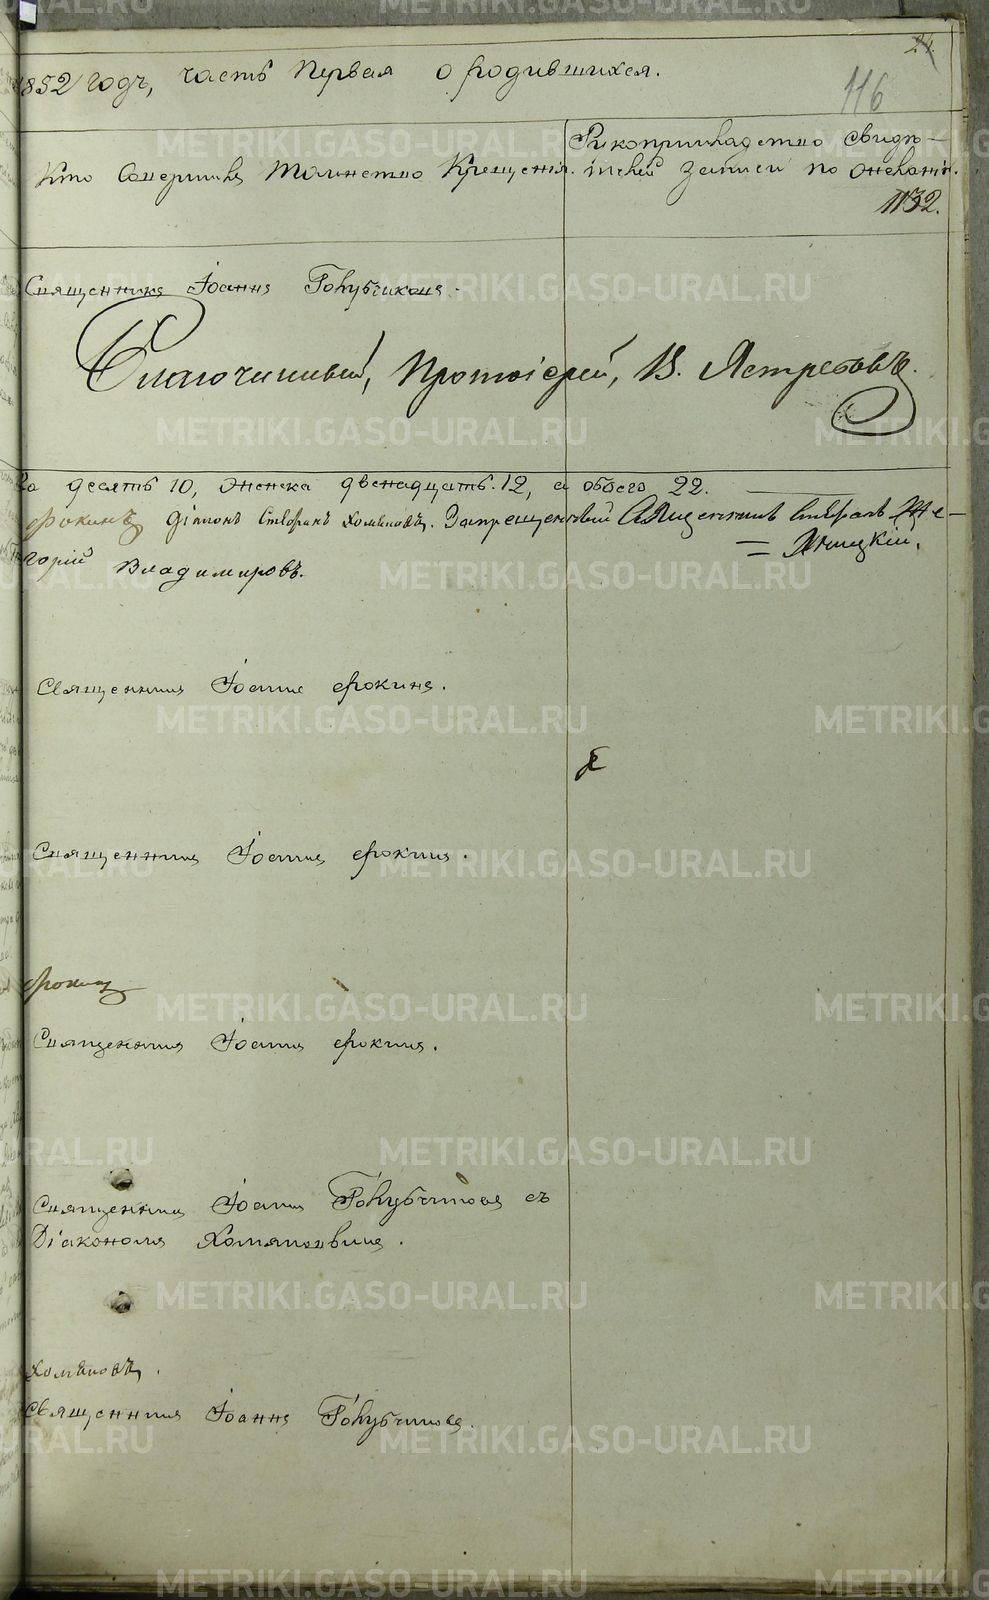 24
116
1852 годъ, часть первая о родившихся.
Кто совершилъ таинство Крещенія.
Рукоприкладство свидѣ-
телей записи по желанію.
1132.
Священникъ Іоаннъ Голубчиковъ.
Благочинный, Протоіерей, В. Ястребовъ.
десять 10, женска двенадцать. 12, а обоего 22.
Фокинъ Діаконъ Стефанъ Хомяковъ. Запрещенный Священникъ Стефанъ
горій Владимировъ.
Священникъ Іоаннъ Фокинъ.
Священникъ Іоаннъ Фокинъ.
Фокинъ
Священникъ Іоаннъ Фокинъ.
Священникъ Іоаннъ Голубчиковъ съ
Діакономъ Хомяковымъ.
Хомяковъ.
Священникъ Іоаннъ Голубчиковъ.
METRIKI.GASO-URAL.RU